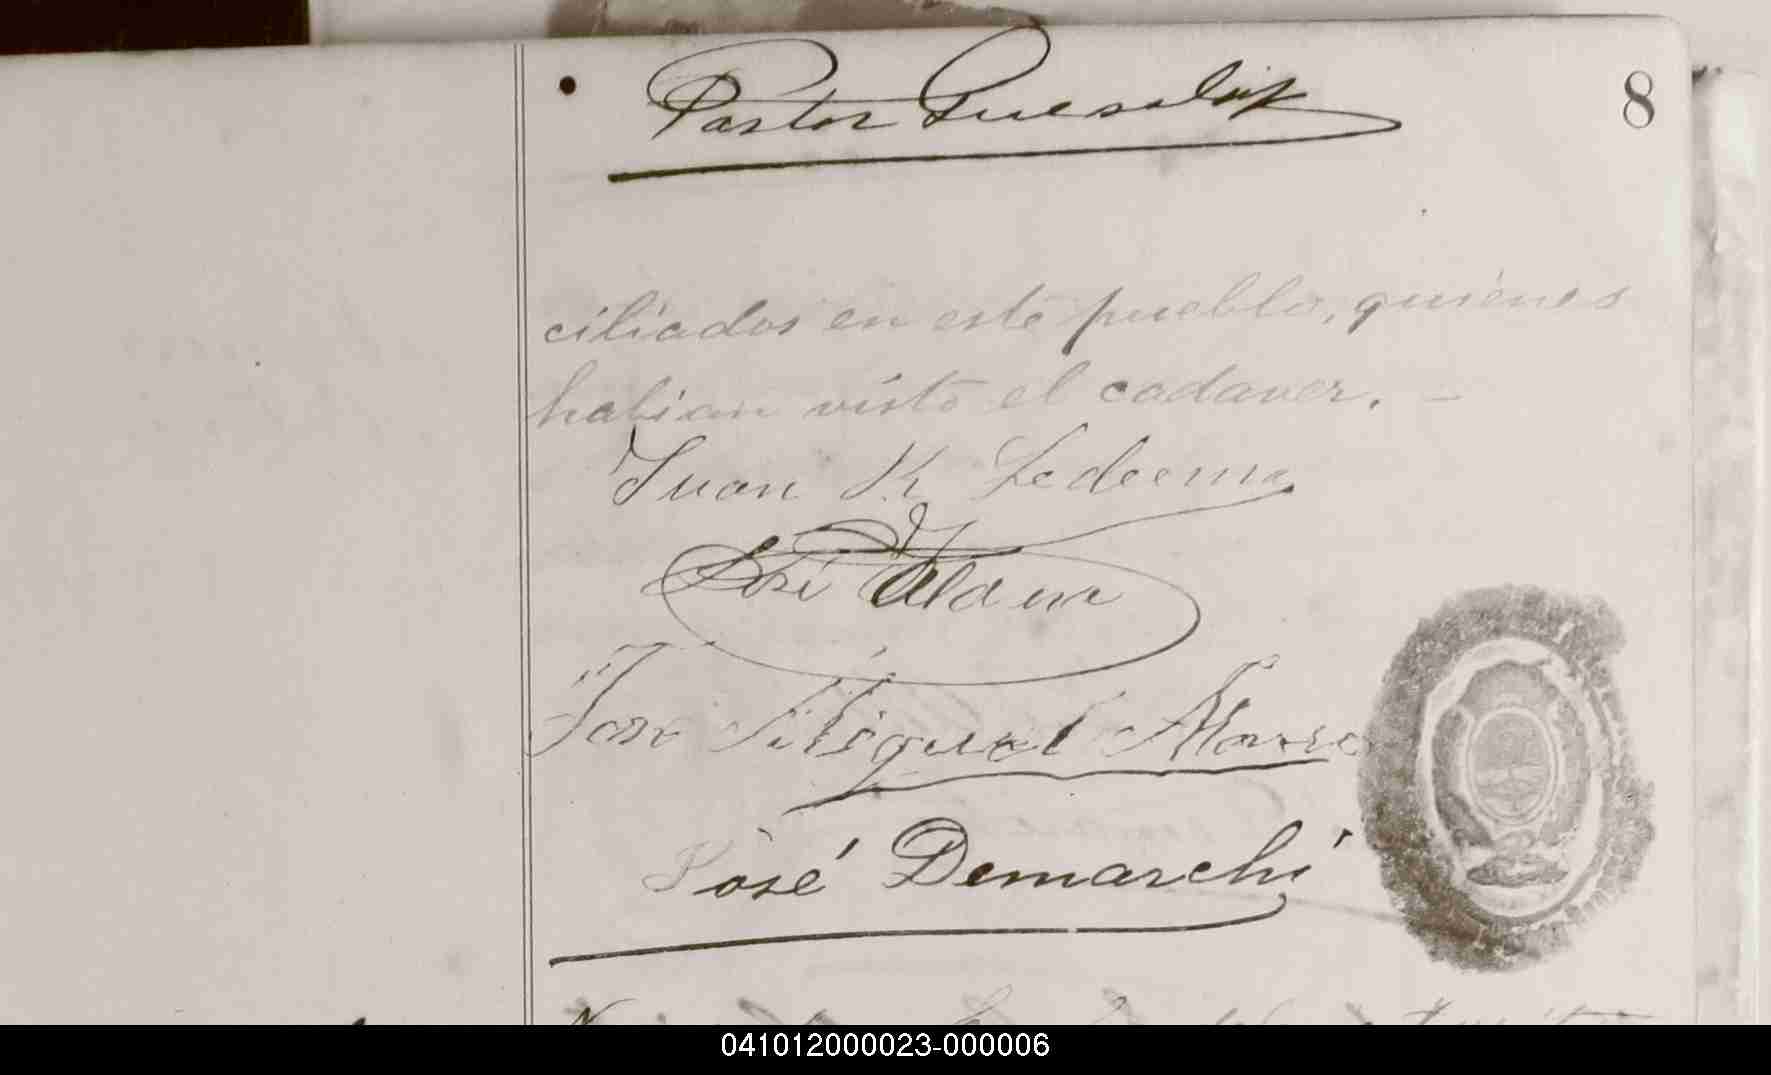 8
Pastor
ciliados en este pueblo, quienes
habian visto el cadaver. —
Juan K Ledesma
José Aldana
José Miguel
José Demarchi
041012000023-000006